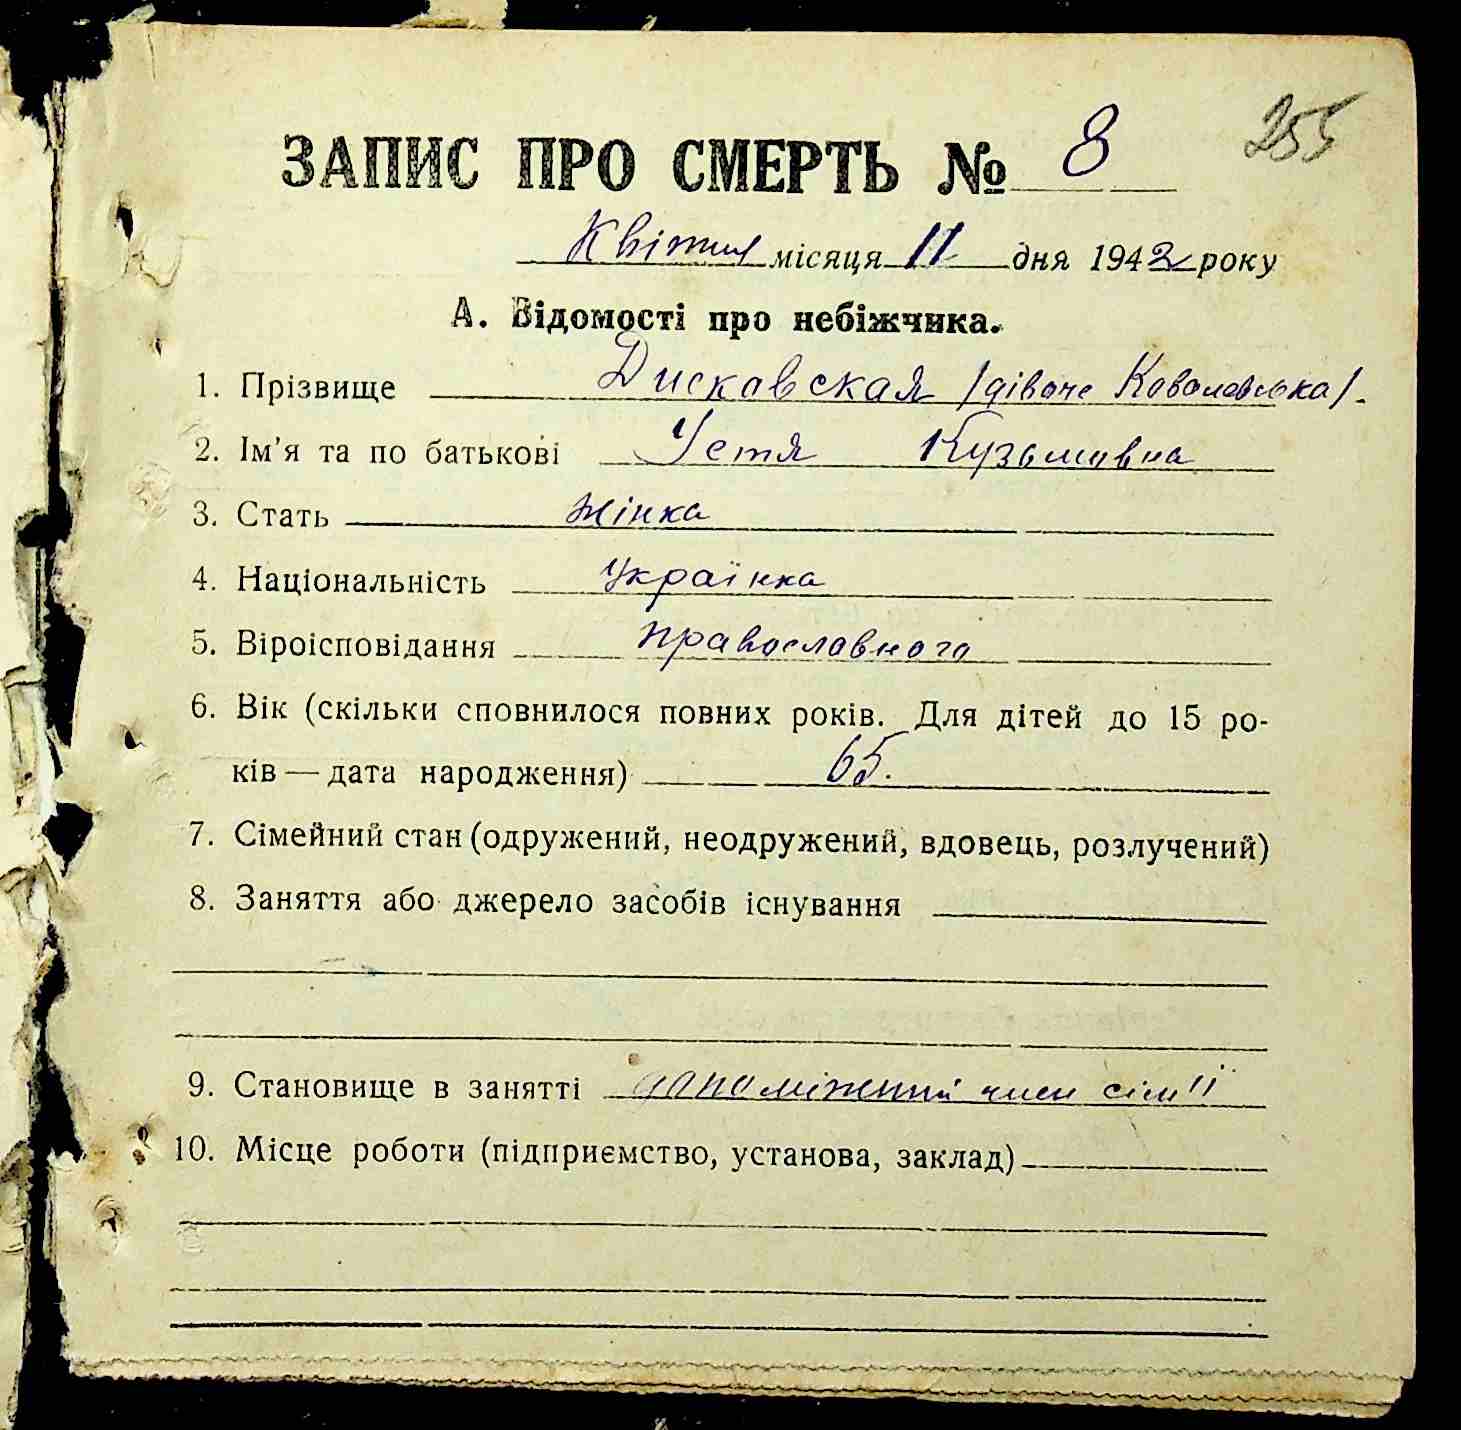 255
ЗАПИС ПРО СМЕРТЬ № 8
Квітня місяця 11 дня 1942 року
А. Відомості про небіжчика.
1. Прізвище Дискавская /дівоче Ковалевська/.
2. Ім'я та по батькові Устя Кузьмівна
3. Стать жінка
4. Національність українка
5. Віроісповідання православного
6. Вік (скільки сповнилося повних років. Для дітей до 15 ро-
ків — дата народження) 65.
7. Сімейний стан (одружений, неодружений, вдовець, розлучений)
8. Заняття або джерело засобів існування
9. Становище в занятті допоміжний член сім'ї
10. Місце роботи (підприємство, установа, заклад)